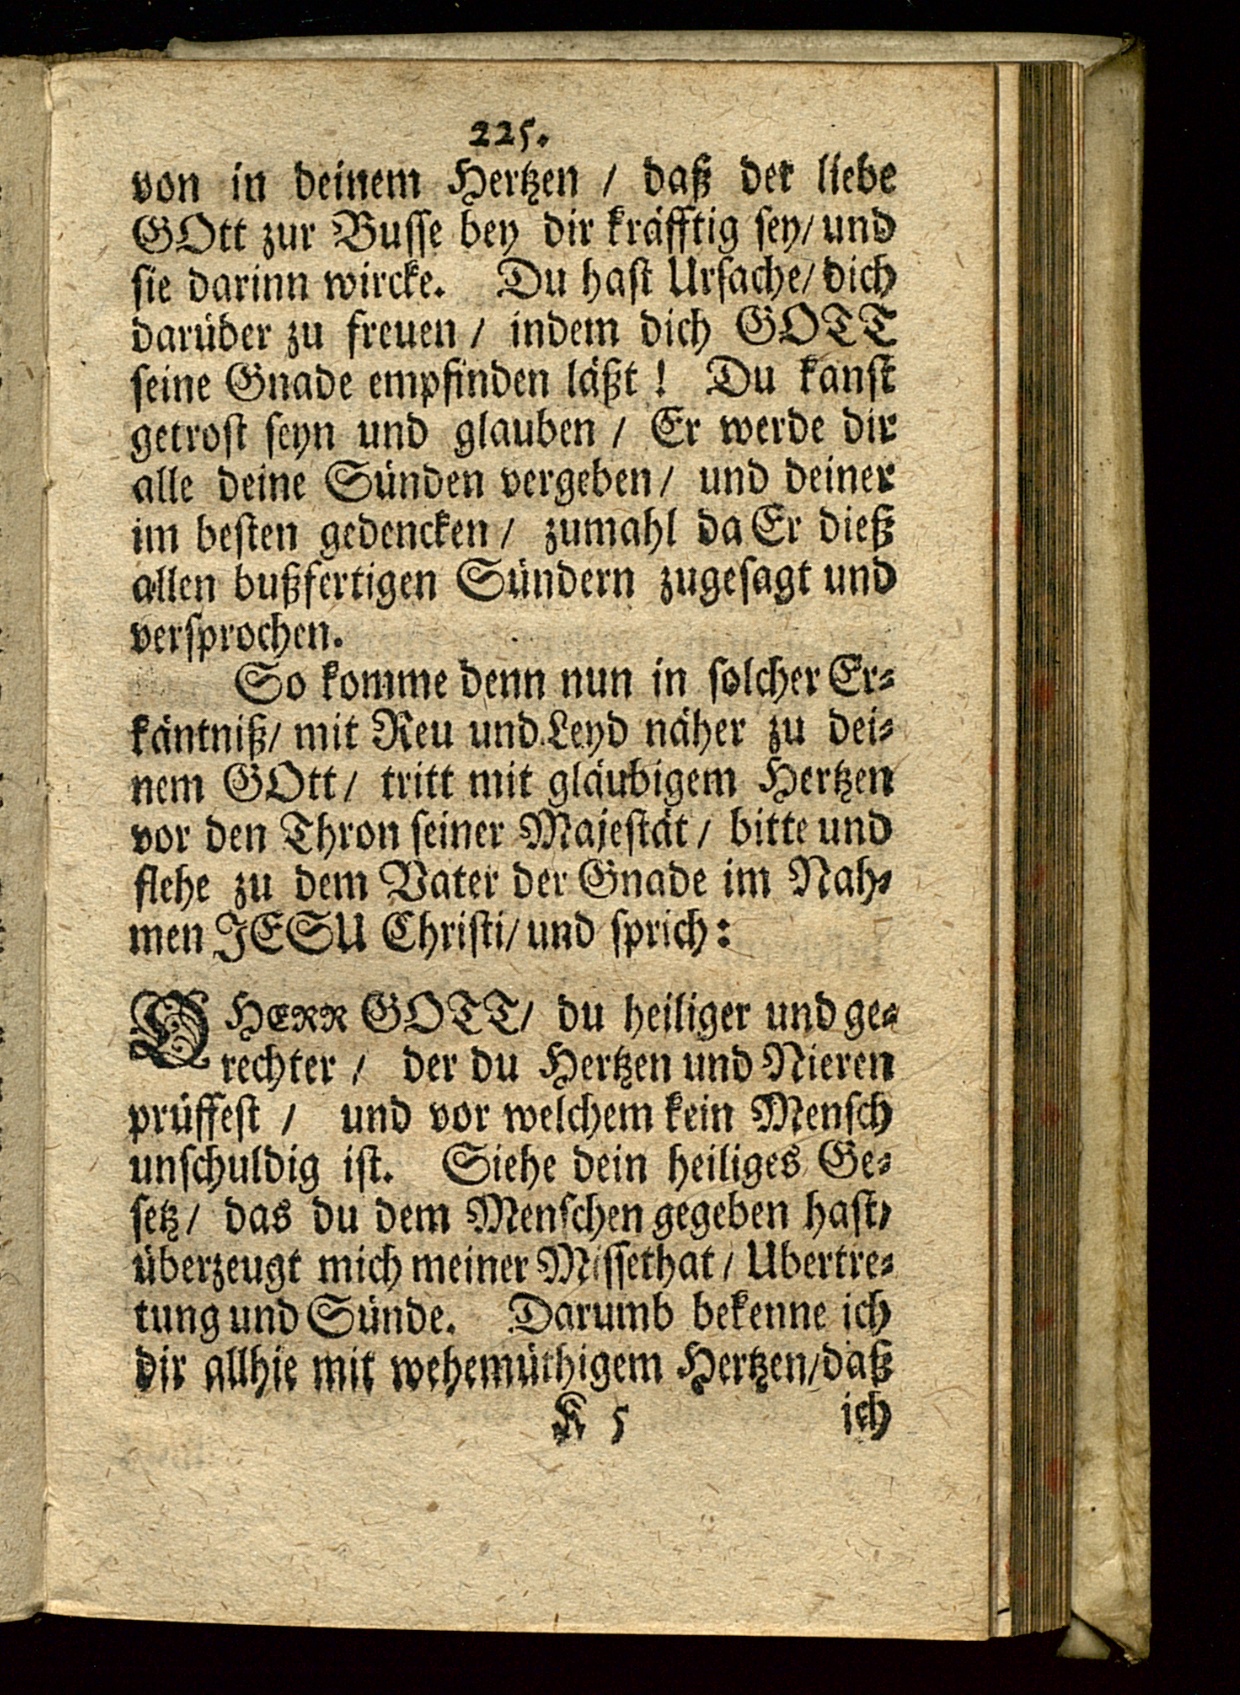 225.
von in deinem Hertzen / daß der liebe
GOtt zur Busse bey dir kräfftig sey/ und
sie darinn wircke. Du hast Ursache/ dich
darüber zu freuen / indem dich GOTT
seine Gnade empfinden läßt ! Du kanst
getrost seyn und glauben / Er werde dir
alle deine Sünden vergeben / und deiner
im besten gedencken / zumahl da Er dieß
allen bußfertigen Sündern zugesagt und
versprochen.
So komme denn nun in solcher Er-
käntniß/ mit Reu und Leyd näher zu dei-
nem GOtt / tritt mit gläubigem Hertzen
vor den Thron seiner Majestät / bitte und
flehe zu dem Vater der Gnade im Nah-
men JESU Christi/ und sprich:
O HERR GOTT/ du heiliger und ge-
rechter / der du Hertzen und Nieren
prüffest / und vor welchem kein Mensch
unschuldig ist. Siehe dein heiliges Ge-
setz / das du dem Menschen gegeben hast/
überzeugt mich meiner Missethat / Ubertre-
tung und Sünde. Darumb bekenne ich
dir allhie mit wehemüthigem Hertzen/ daß
K 5 ich